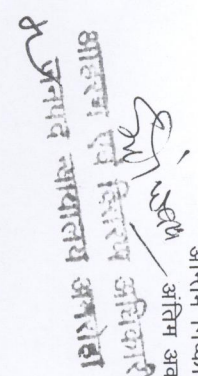 अंतिम अव
आहरण एवं वितरण अधिकारी
जनपद न्यायालय अमरोहा